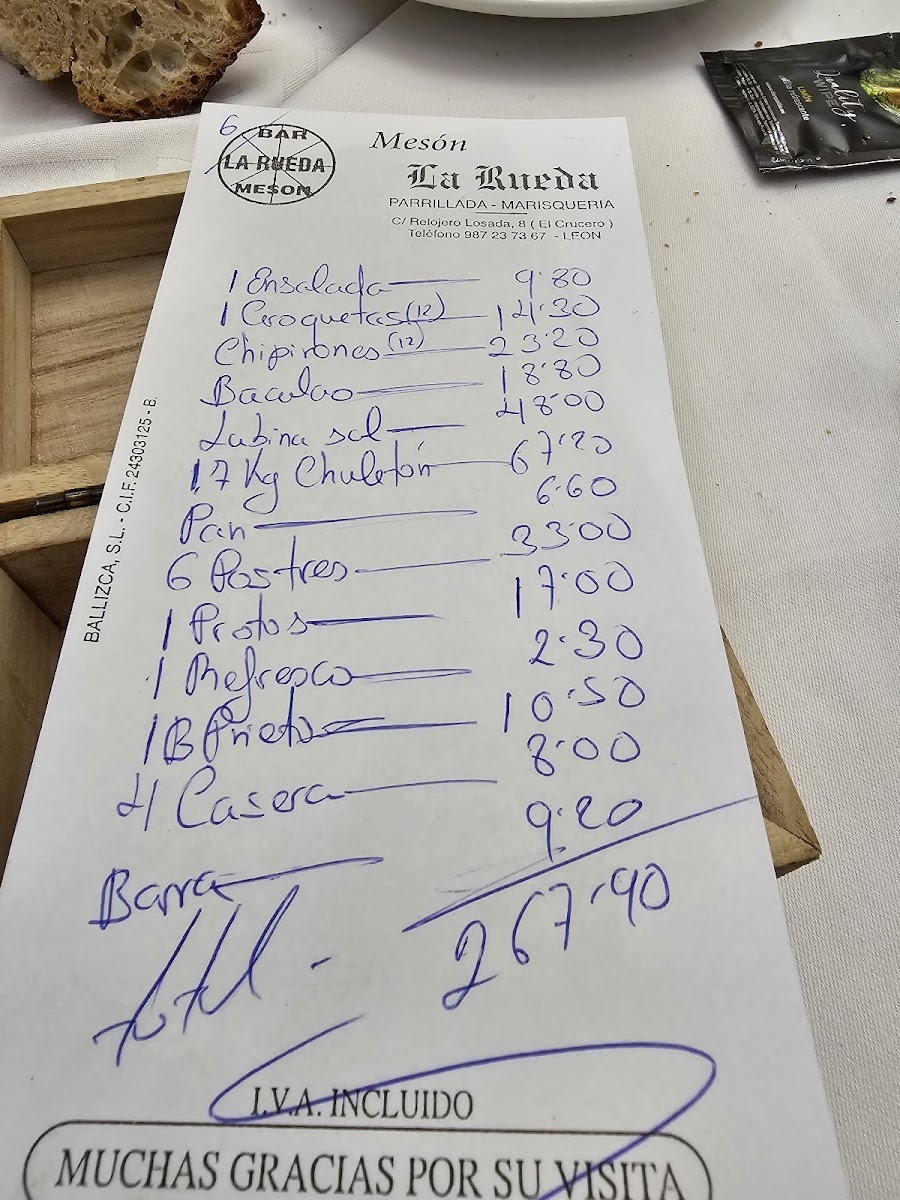 6
BAR
LA RUEDA
MESON
Mesón
La Rueda
PARRILLADA - MARISQUERIA
C/ Relojero Losada, 8 ( El Crucero )
Teléfono 987 23 73 67 - LEON
1 Ensalada 9'80
1 Croquetas (12) 14'30
Chipirones (12) 23'20
Bacalao 18'80
Lubina sal 48'00
1,7 Kg Chuletón 67'20
Pan 6'60
6 Postres 33'00
1 Protos 17'00
1 Refresco 2'30
1 B Prieto 10'50
4 Casera 8'00
Barra 9'20
Total - 267'90
I.V.A. INCLUIDO
MUCHAS GRACIAS POR SU VISITA
BALLIZCA, S.L. - C.I.F. 24303125 - B.
Quality
WIPE
LIMÓN